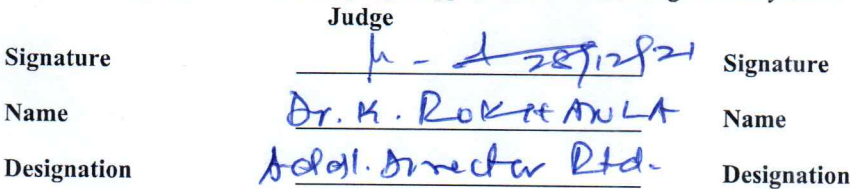 Judge
Signature 28/12/21 Signature
Name Dr. K. ROKHANULA Name
Designation Addl. Director Rtd. Designation